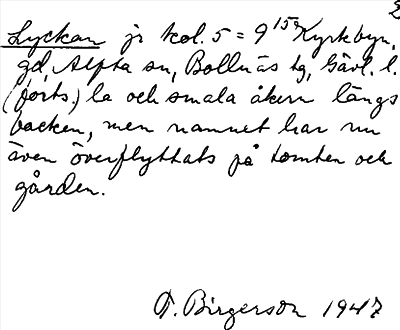 2
Lyckan jr kol. 5 = 9 15a Kyrkbyn,
gd, Alfta sn, Bollnäs tg, Gävl. l.
(forts.) la och smala åkern längs
backen, men namnet har nu
även överflyttats på tomten och
gården.
T. Birgerson 1947